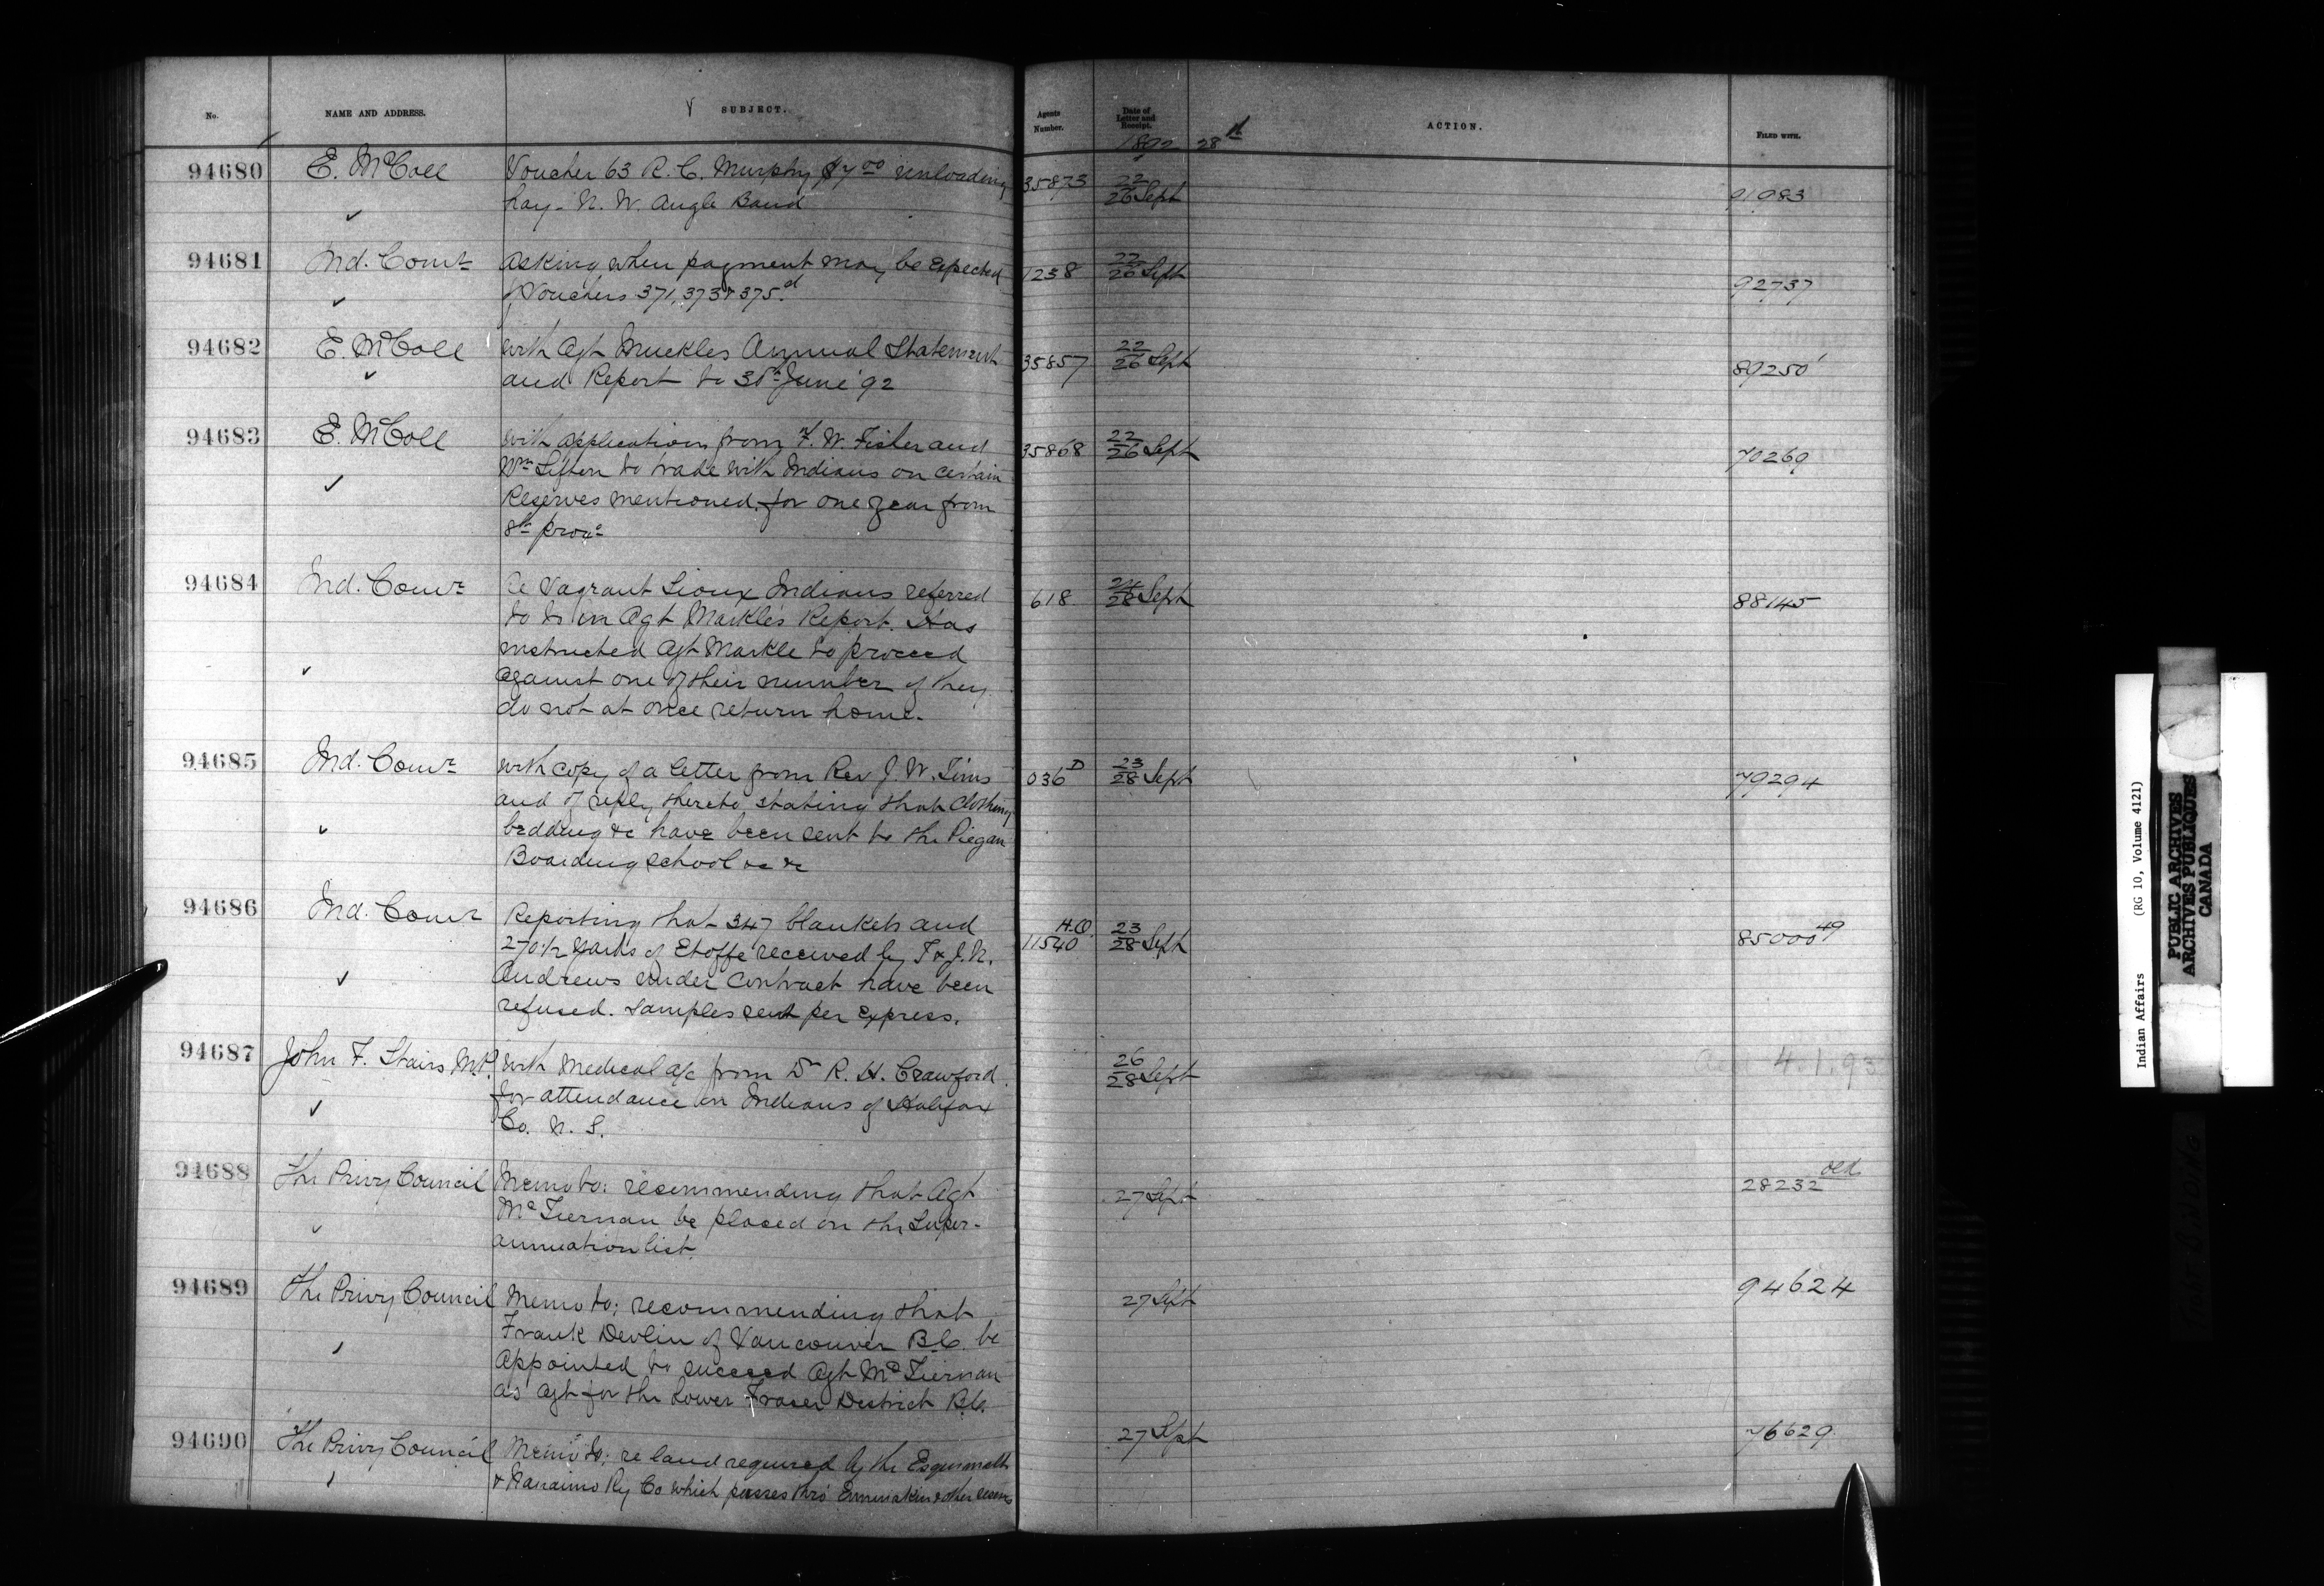 No. NAME AND ADDRESS. SUBJECT. Agents Number. Date of Letter and Receipt. ACTION. FILED WITH.
1892 28th
94680 E. McColl Voucher 63 R. C. Murphy $7.00 unloading 35873 22/26 Sept 91983
hay - N. W. Angle Band
94681 Ind. Comr Asking when payment may be expected 1238 22/26 Sept 92737
of Vouchers 371, 373 & 375.d
94682 E. McColl With Agt Muckles Annual Statement 35857 22/26 Sept 89250
and Report to 30th June '92
94683 E. McColl With application from F. W. Fisher and 35868 22/26 Sept 70269
Wm Sifton to trade with Indians on certain
Reserves mentioned for one year from
8th proxo
94684 Ind. Comr Re Vagrant Sioux Indians referred 618 24/28 Sept 88145
to in Agt Markle's Report. Has
instructed Agt Markle to proceed
against one of their number if they
do not at once return home.
94685 Ind. Comr With copy of a letter from Rev J. W. Tims 036 D 23/28 Sept 79294
and of reply thereto stating that clothing
bedding &c have been sent to the Piegan
Boarding school &c &c
94686 Ind. Comr Reporting that 347 blankets and H.O. 11540 23/28 Sept 85000 49
270 1/2 yards of Etoffe received by T & J. N.
Andrews under contract have been
refused. Samples sent per express.
94687 John F. Stairs M.P. With Medical a/c from Dr R. H. Crawford 26/28 Sept 4.1.93
for attendance on Indians of Halifax
Co. N. S.
94688 The Privy Council Memo to: recommending that Agt 27 Sept 28232 old
McTiernan be placed on the Super-
annuation list.
94689 The Privy Council Memo to: recommending that 27 Sept 94624
Frank Devlin of Vancouver B.C. be
appointed to succeed Agt McTiernan
as Agt for the Lower Fraser District B.C.
94690 The Privy Council Memo to: re land required by the Esquimalt 27 Sept 76629
& Nanaimo Ry Co which passes thro' & other
Indian Affairs (RG 10, Volume 4121)
PUBLIC ARCHIVES
ARCHIVES PUBLIQUES
CANADA